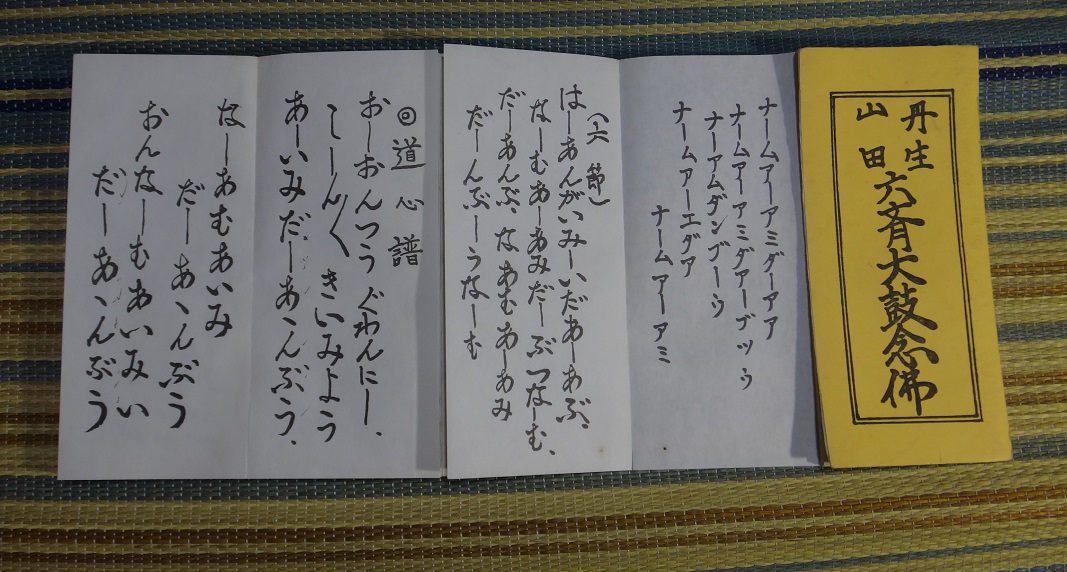 丹生
山田
六斉太鼓念佛
ナームアーアミダーアア
ナームアーアミダアーブッゥ
ナーアムダンブーゥ
ナームアーエダア
ナームアーアミ
(六節)
はーあんがいみーいだあーあぶ、
なーむあーあみだーぶつなーむ、
だーあんぶ、なあむあーあみ
だーんぶーうなーむ
◎道心譜
おーおんつうぐわんにー、
こーん〱きいみよう
あーいみだーあゝんぶう、
なーあむあいみ
だーあゝんぶう
おんなーむあいみい
だーあゝんぶう